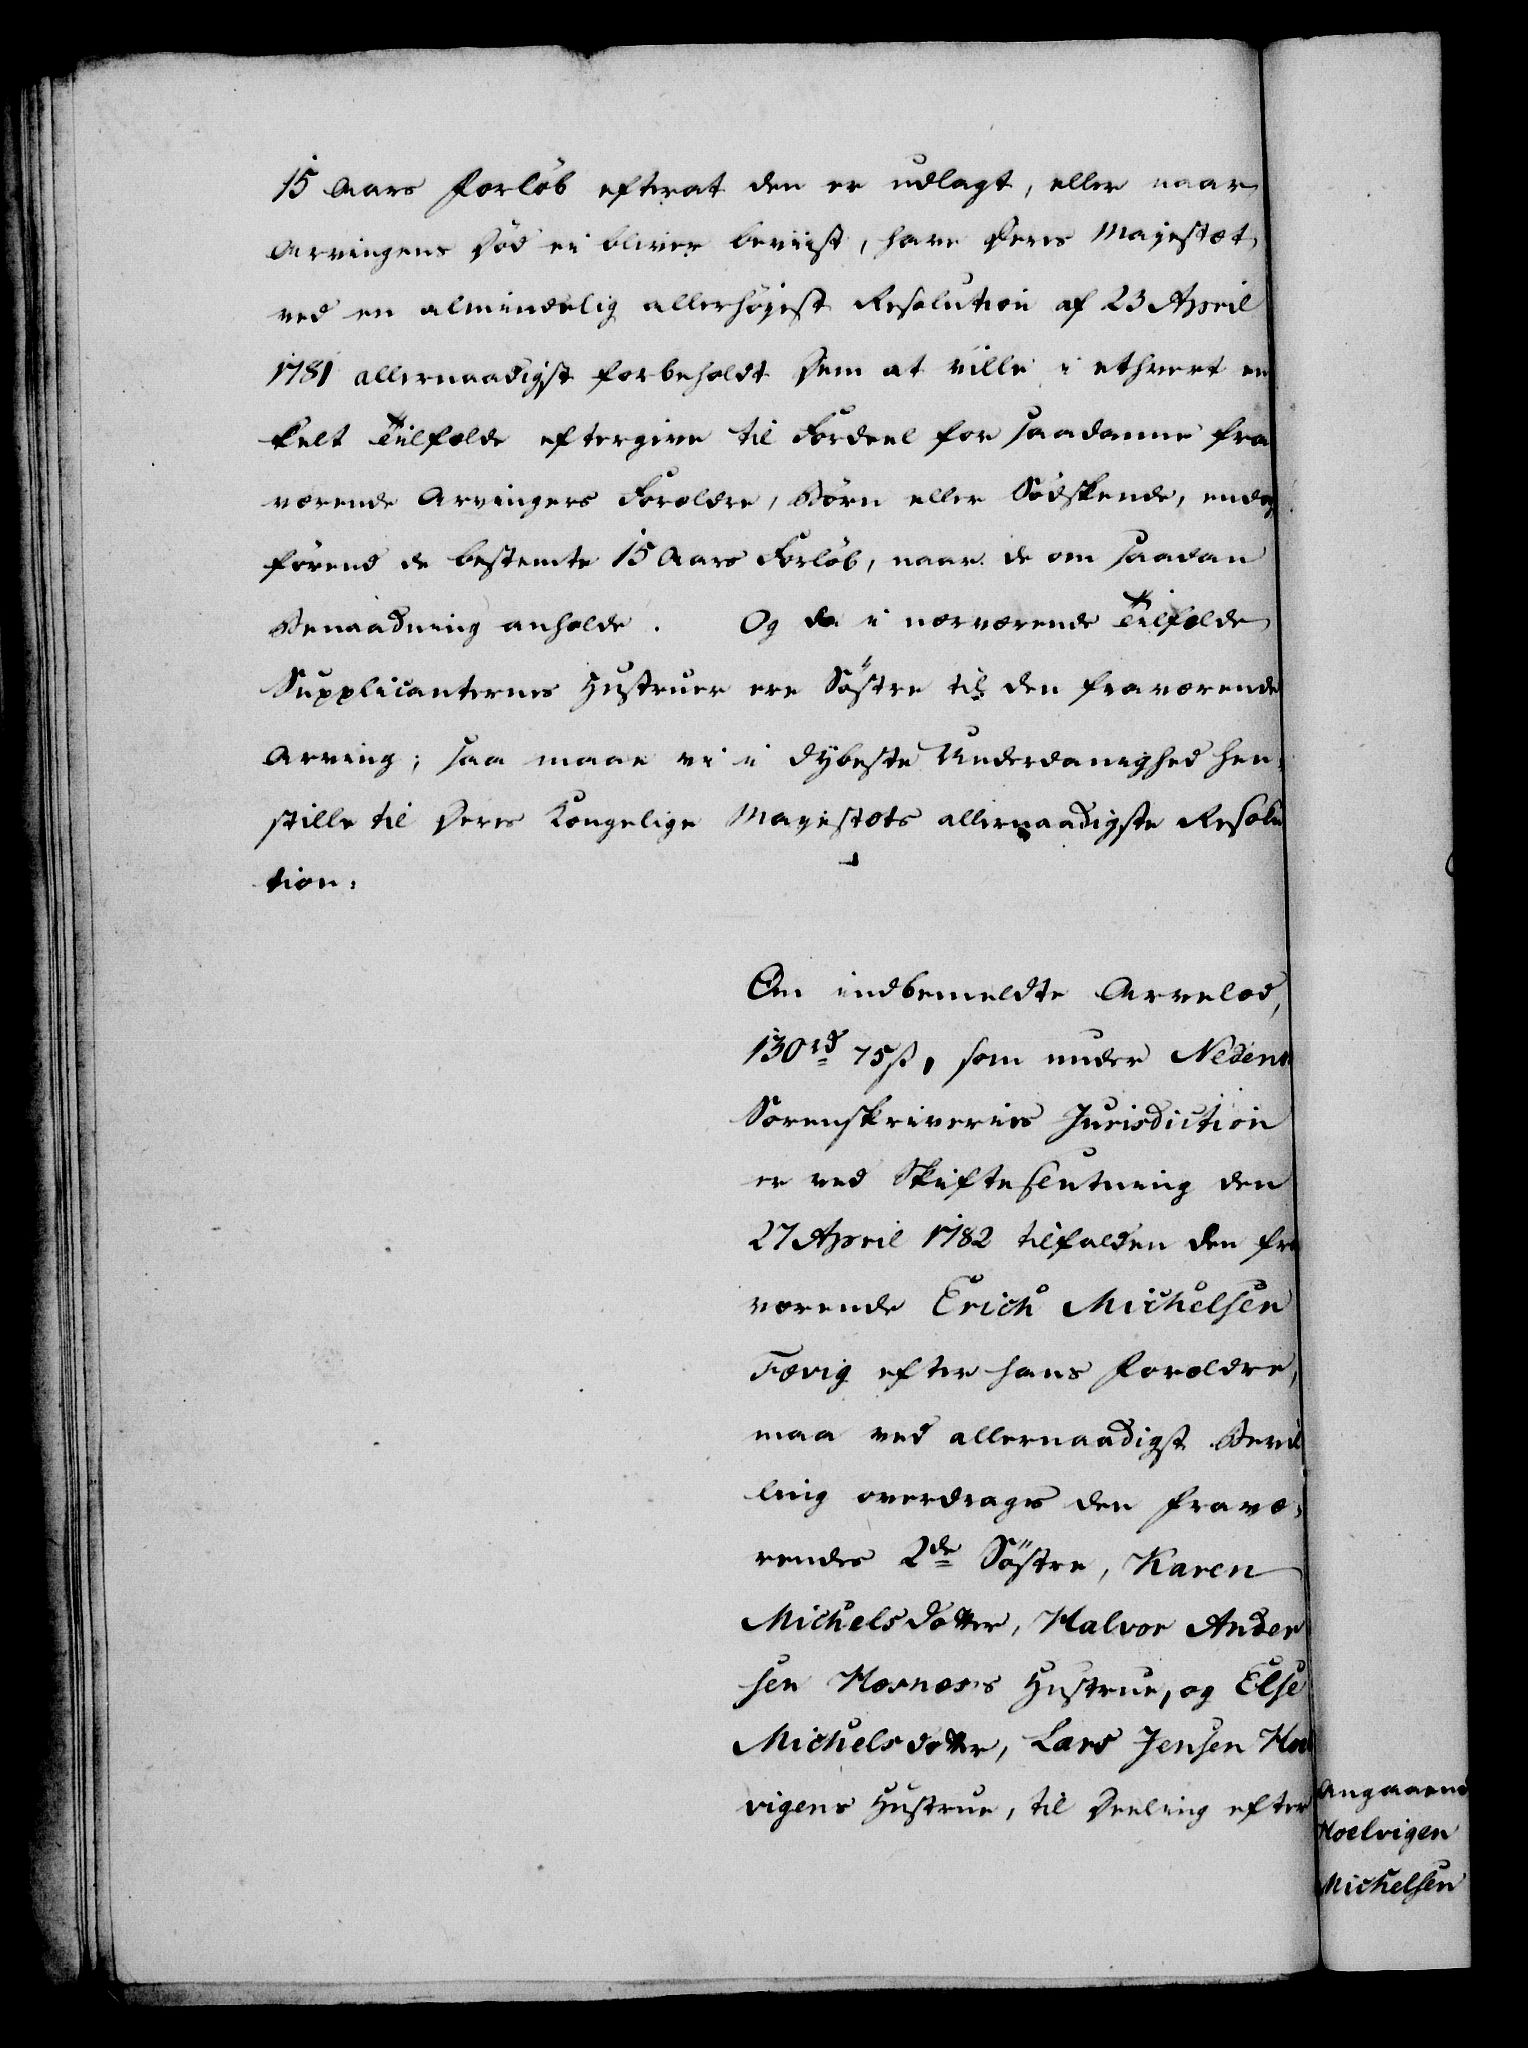 15 Aars Forløb efterat den er udlagt, eller naar
Arvingens Død ei bliver beviist, have Deres Majestæt
ved en almindelig allerhøjest Resolution af 23 April
1781 allernaadigst forbeholdt Dem at ville i ethvert en
kelt Tilfælde eftergive til Fordeel for saadanne fra
værende Arvingers Forældre, Børn eller Sødskende, endog
førend de bestemte 15 Aars Forløb, naar de om saadan
Benaadning anholde. Og da i nærværende Tilfælde
Supplicanternes Hustruer ere Søstre til den fraværende
Arving; saa maae vi i dybeste Underdanighed hen-
stille til Deres Kongelige Majestæts allernaadigste Resolu
tion:
En indbemeldte Arvelod,
130 rd 75 ß, som under Nedenes
Sorenskriveries Jurisdiction
er ved Skiftesluttning den
27 April 1782 tilfalden den fra
værende Erich Michelsen
Fævig efter hans Forældre,
maa ved allernaadigst Bevil
ling overdrages den fravæ-
rendes 2de Søstre, Karen
Michelsdotter, Halvor Ander
sen Hasnæs's Hustrue, og Else
Michelsdotter, Lars Jensen Hoel
vigens Hustrue, til Deeling efter
Angaaend
Hoelvigen
Michelsen